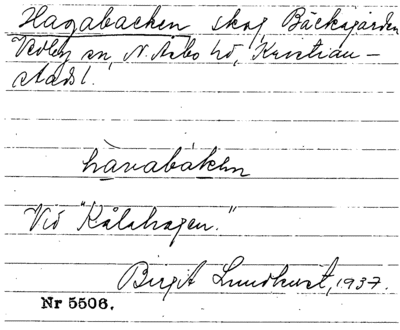 Hagabacken skog Bäcksgården
Vedby sn, N. Åsbo hd, Kristian-
stads l.
hàvabákën
Vid "Kålahagen."
Birgit Lundkvist, 1937.
Nr 5506.